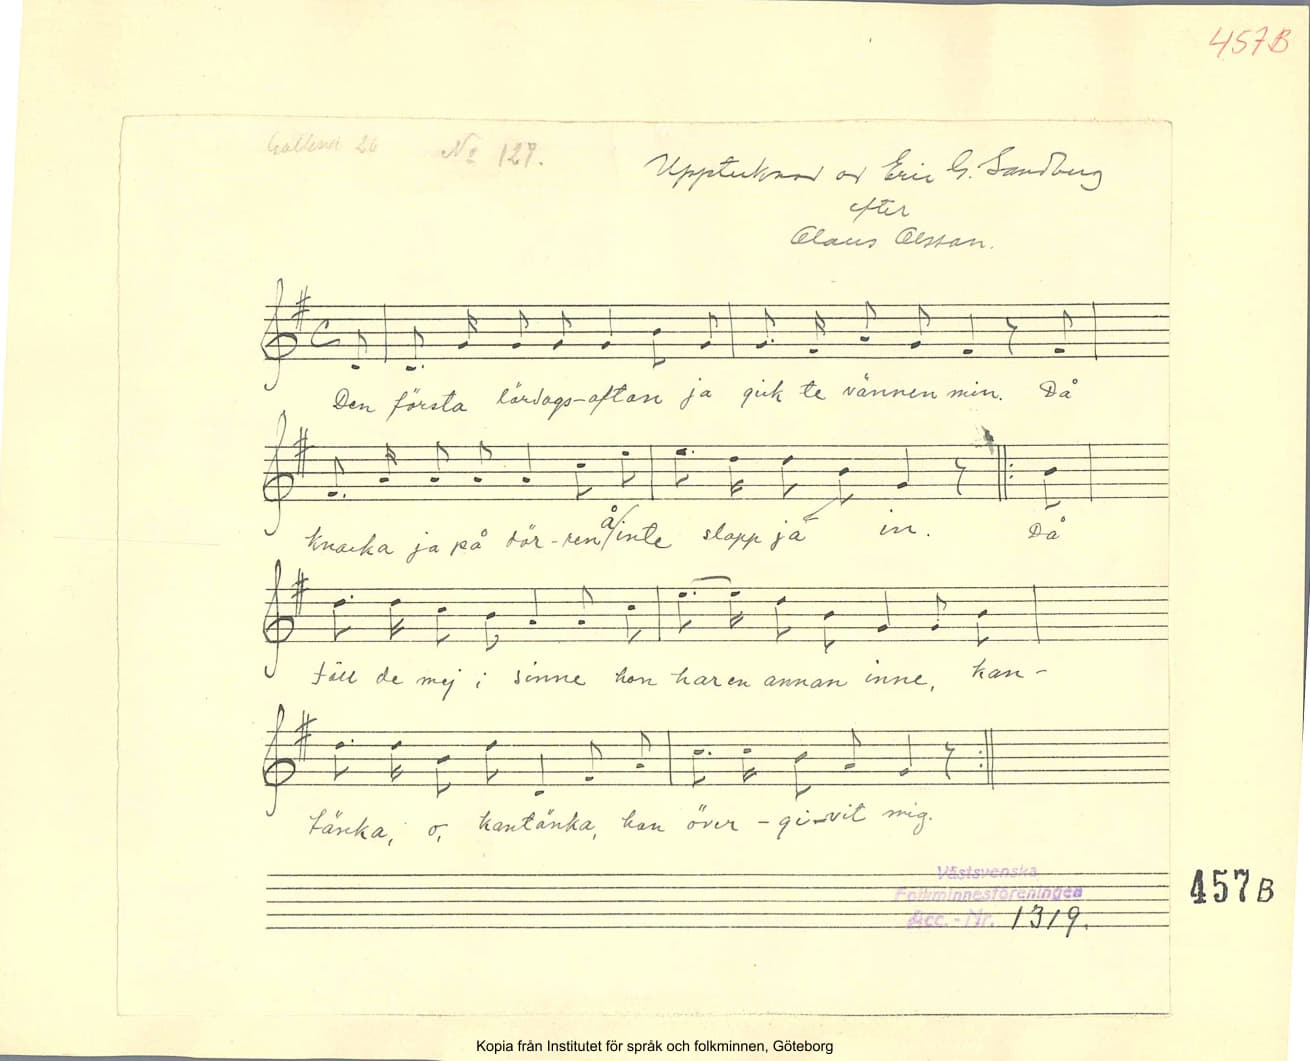 457B
No 127.
Upptecknad av Eric G. Sandberg
efter
Olaus Olsson.
Den första lördags-aftan ja gik te vännen min. Då
knacka ja på dör-ren å inte slapp ja in. Då
föll de mej i sinne hon har en annan inne, kan-
tänka, o, kantänka, hon över-gi-vit mig.
Västsvenska
Folkminnesföreningen
Acc.-Nr. 1319.
457B
Kopia från Institutet för språk och folkminnen, Göteborg